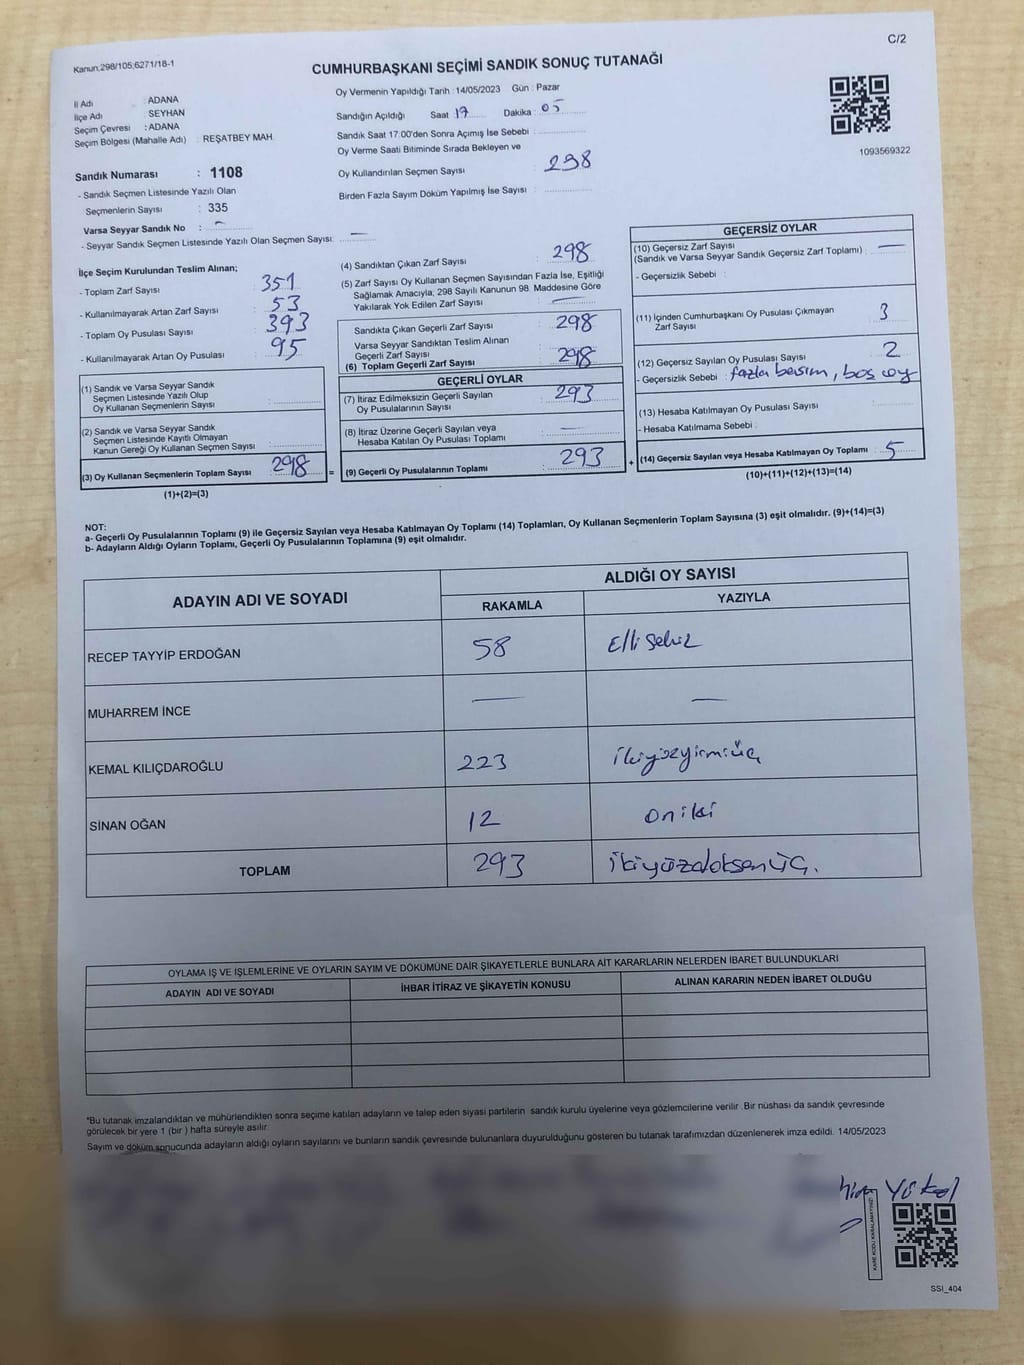 C/2
Kanun;298/105;6271/18-1
CUMHURBAŞKANI SEÇİMİ SANDIK SONUÇ TUTANAĞI
İl Adı : ADANA
İlçe Adı : SEYHAN
Seçim Çevresi : ADANA
Seçim Bölgesi (Mahalle Adı) : REŞATBEY MAH.
Sandık Numarası : 1108
- Sandık Seçmen Listesinde Yazılı Olan
Seçmenlerin Sayısı : 335
Varsa Seyyar Sandık No : —
- Seyyar Sandık Seçmen Listesinde Yazılı Olan Seçmen Sayısı: —
Oy Vermenin Yapıldığı Tarih : 14/05/2023 Gün : Pazar
Sandığın Açıldığı Saat 17 Dakika : 05
Sandık Saat 17:00'den Sonra Açımış İse Sebebi :
Oy Verme Saati Bitiminde Sırada Bekleyen ve
Oy Kullandırılan Seçmen Sayısı : 298
Birden Fazla Sayım Döküm Yapılmış İse Sayısı :
1093569322
İlçe Seçim Kurulundan Teslim Alınan;
- Toplam Zarf Sayısı : 351
- Kullanılmayarak Artan Zarf Sayısı : 53
- Toplam Oy Pusulası Sayısı : 393
- Kullanılmayarak Artan Oy Pusulası : 95
(1) Sandık ve Varsa Seyyar Sandık
Seçmen Listesinde Yazılı Olup
Oy Kullanan Seçmenlerin Sayısı :
(2) Sandık ve Varsa Seyyar Sandık
Seçmen Listesinde Kayıtlı Olmayan
Kanun Gereği Oy Kullanan Seçmen Sayısı :
(3) Oy Kullanan Seçmenlerin Toplam Sayısı : 298 =
(1)+(2)=(3)
(4) Sandıktan Çıkan Zarf Sayısı : 298
(5) Zarf Sayısı Oy Kullanan Seçmen Sayısından Fazla İse, Eşitliği
Sağlamak Amacıyla; 298 Sayılı Kanunun 98. Maddesine Göre
Yakılarak Yok Edilen Zarf Sayısı : —
Sandıkta Çıkan Geçerli Zarf Sayısı : 298
Varsa Seyyar Sandıktan Teslim Alınan
Geçerli Zarf Sayısı :
(6) Toplam Geçerli Zarf Sayısı : 298
GEÇERLİ OYLAR
(7) İtiraz Edilmeksizin Geçerli Sayılan
Oy Pusulalarının Sayısı : 293
(8) İtiraz Üzerine Geçerli Sayılan veya
Hesaba Katılan Oy Pusulası Toplamı : —
(9) Geçerli Oy Pusulalarının Toplamı : 293 +
GEÇERSİZ OYLAR
(10) Geçersiz Zarf Sayısı
(Sandık ve Varsa Seyyar Sandık Geçersiz Zarf Toplamı) : —
- Geçersizlik Sebebi :
(11) İçinden Cumhurbaşkanı Oy Pusulası Çıkmayan
Zarf Sayısı : 3
(12) Geçersiz Sayılan Oy Pusulası Sayısı : 2
- Geçersizlik Sebebi : fazla basım, boş oy
(13) Hesaba Katılmayan Oy Pusulası Sayısı :
- Hesaba Katılmama Sebebi :
(14) Geçersiz Sayılan veya Hesaba Katılmayan Oy Toplamı : 5
(10)+(11)+(12)+(13)=(14)
NOT:
a- Geçerli Oy Pusulalarının Toplamı (9) ile Geçersiz Sayılan veya Hesaba Katılmayan Oy Toplamı (14) Toplamları, Oy Kullanan Seçmenlerin Toplam Sayısına (3) eşit olmalıdır. (9)+(14)=(3)
b- Adayların Aldığı Oyların Toplamı, Geçerli Oy Pusulalarının Toplamına (9) eşit olmalıdır.
ADAYIN ADI VE SOYADI
ALDIĞI OY SAYISI
RAKAMLA YAZIYLA
RECEP TAYYİP ERDOĞAN 58 Elli Sekiz
MUHARREM İNCE — —
KEMAL KILIÇDAROĞLU 223 ikiyüzyirmiüç
SİNAN OĞAN 12 oniki
TOPLAM 293 ikiyüzdoksanüç.
OYLAMA İŞ VE İŞLEMLERİNE VE OYLARIN SAYIM VE DÖKÜMÜNE DAİR ŞİKAYETLERLE BUNLARA AİT KARARLARIN NELERDEN İBARET BULUNDUKLARI
ADAYIN ADI VE SOYADI İHBAR İTİRAZ VE ŞİKAYETİN KONUSU ALINAN KARARIN NEDEN İBARET OLDUĞU
*Bu tutanak imzalandıktan ve mühürlendikten sonra seçime katılan adayların ve talep eden siyasi partilerin sandık kurulu üyelerine veya gözlemcilerine verilir. Bir nüshası da sandık çevresinde
görülecek bir yere 1 (bir ) hafta süreyle asılır.
Sayım ve döküm sonucunda adayların aldığı oyların sayılarını ve bunların sandık çevresinde bulunanlara duyurulduğunu gösteren bu tutanak tarafımızdan düzenlenerek imza edildi. 14/05/2023
KARE KODU KARALAMAYINIZ!
SSI_404